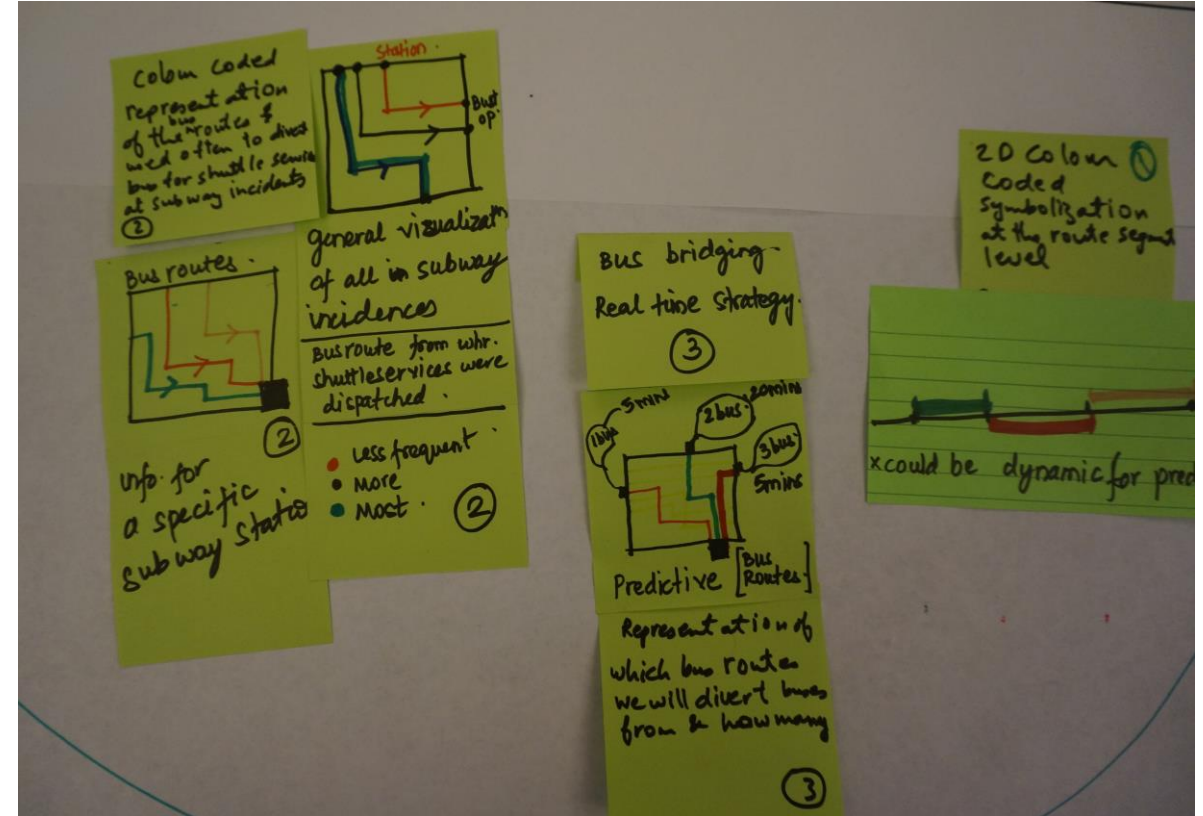 Colour coded
representation
of the bus routes &
used often to divert
bus for shuttle servic
at subway incidents
2
Station.
Bust
op.
general visualizatn
of all in subway
incidences
Bus route from whr.
shuttle services were
dispatched.
Less frequent
More
Most.
2
Bus routes.
2
info. for
a specific
subway statio
Bus bridging.
Real time strategy.
3
5mins
1bus
2bus.
20mins
3bus.
5mins
Predictive [Bus
Routes]
Representation of
which bus routes
we will divert buses
from & how many
3
2D Colour
Coded
Symbolization
at the route segmt
level
x could be dynamic for pred